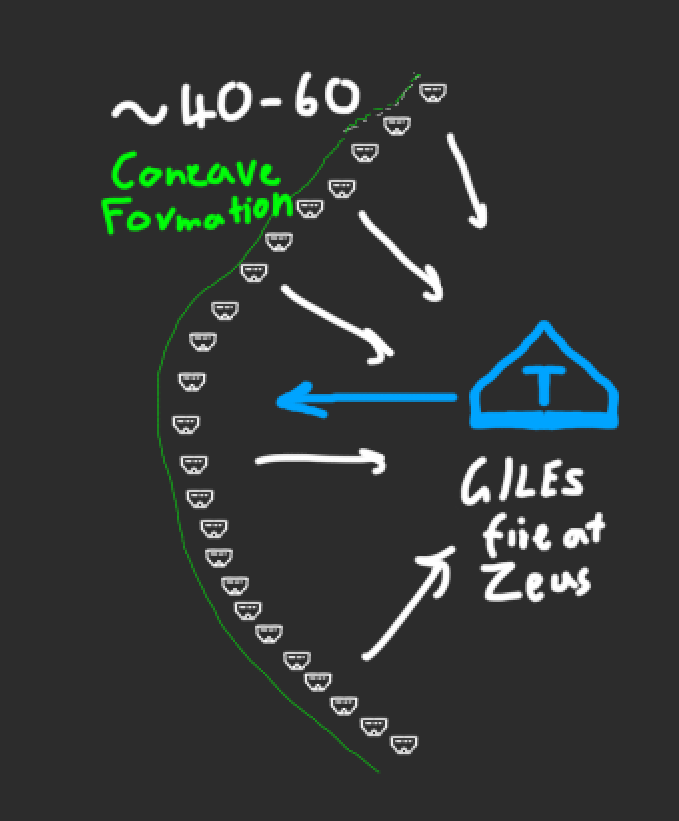 ~40-60
Concave
Formation
T
GILEs
fire at
Zeus